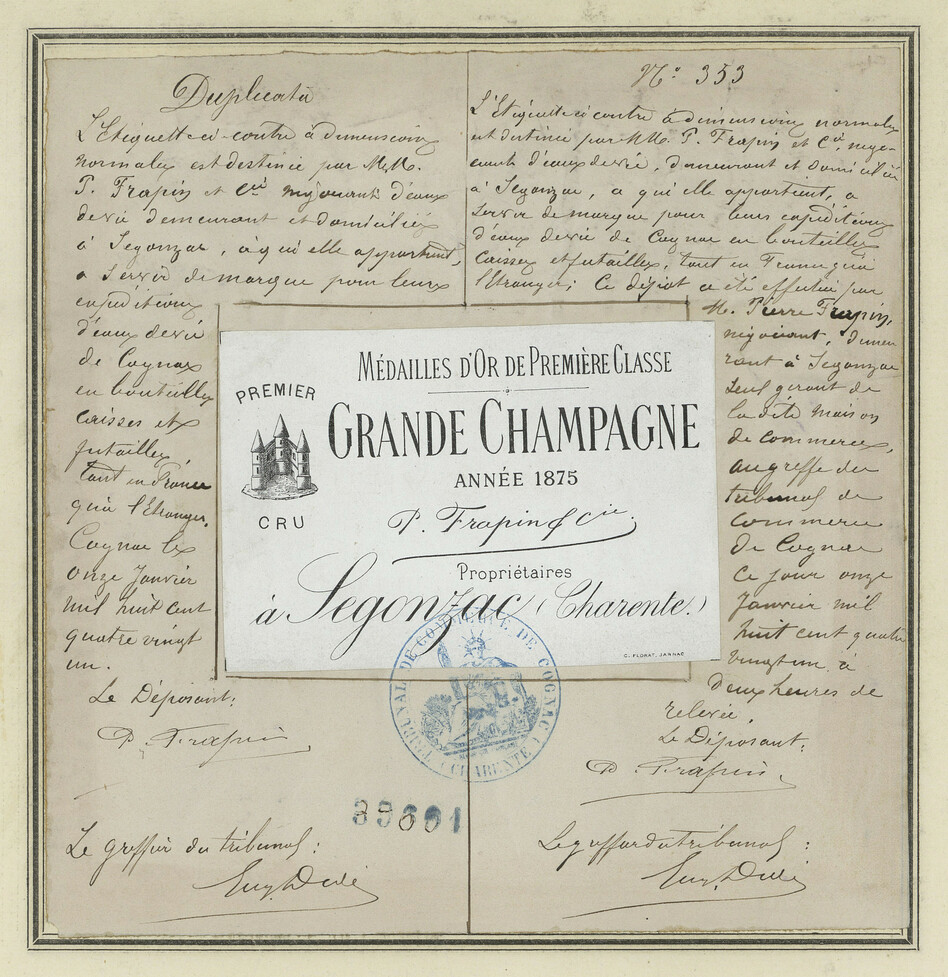 Duplicata
L'Etiquette ci-contre à dimensions
normales est destinée par M.M.
P. Frapin et Cie négociants d'eaux
de vie demeurant et domiciliés
à Segonzac, à qui elle appartient,
à servir de marque pour leurs
expéditions
d'eaux de vie
de Cognac
en bouteilles
caisses et
futailles,
tant en France
qu'à l'Etranger.
Cognac le
onze Janvier
mil huit cent
quatre vingt
un.
Le Déposant:
P. Frapin
Le greffier du tribunal:
N° 353
L'Etiquette ci contre à dimensions normales
est destinée par MM. P. Frapin et Cie négo-
ciants d'eaux de vie, demeurant et domiciliés
à Segonzac, à qui elle appartient, à
servir de marque pour leurs expéditions
d'eaux de vie de Cognac en bouteilles
caisses et futailles, tant en France qu'à
l'Etranger; Ce dépôt a été effectué par
M. Pierre Frapin,
négociant, demeu
rant à Segonzac
seul gérant de
la dite maison
de commerce,
au greffe du
tribunal de
commerce
de Cognac
ce jour onze
Janvier mil
huit cent quatre
vingt un à
deux heures de
relevée.
Le Déposant:
P. Frapin.
Le greffier du tribunal:
MÉDAILLES D'OR DE PREMIÈRE CLASSE
PREMIER
CRU
GRANDE CHAMPAGNE
ANNÉE 1875
P. Frapin & Cie
Propriétaires
à Segonzac (Charente.)
C. FLORAT, JARNAC
TRIBUNAL DE COMMERCE DE COGNAC
(CHARENTE)